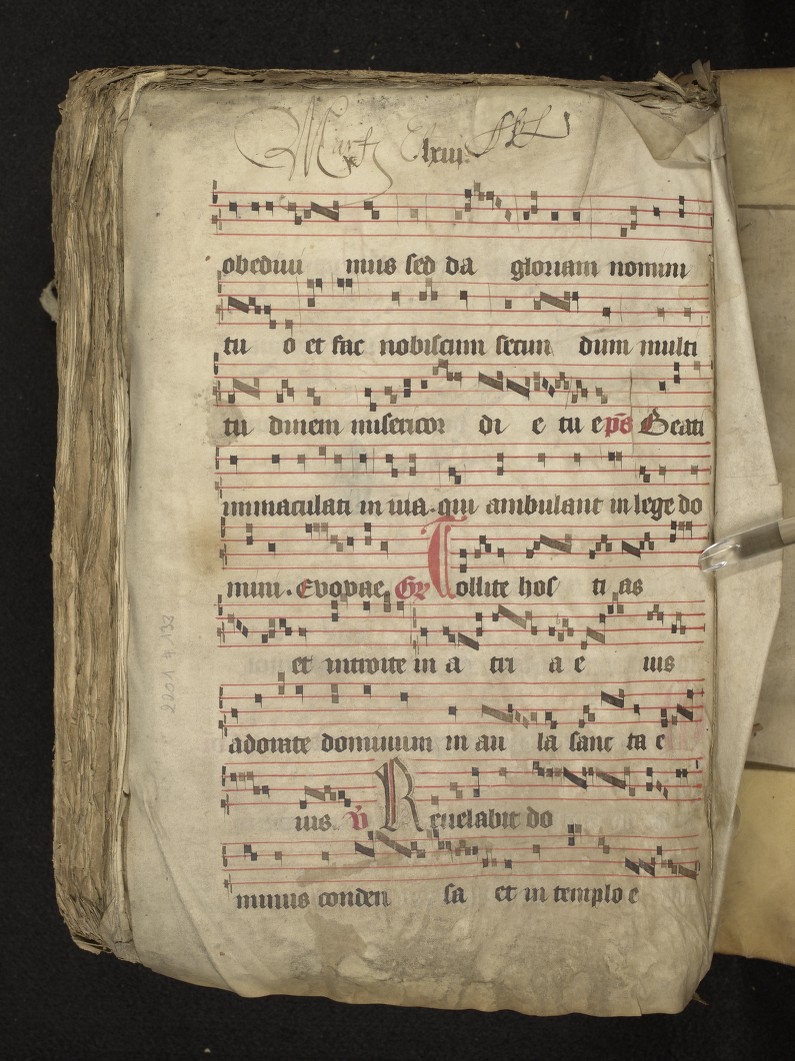 lxiii.
obediui mus sed da gloriam nomini
tu o et fac nobiscum secun dum multi
tu dinem misericor di e tu e ps Beati
immaculati in uia. qui ambulant in lege do
mini. Evovae Gr Tollite hos ti as
et introite in a tri a e ius
adorate dominum in au la sanc ta e
ius. V Reuelabit do
minus conden sa et in templo e